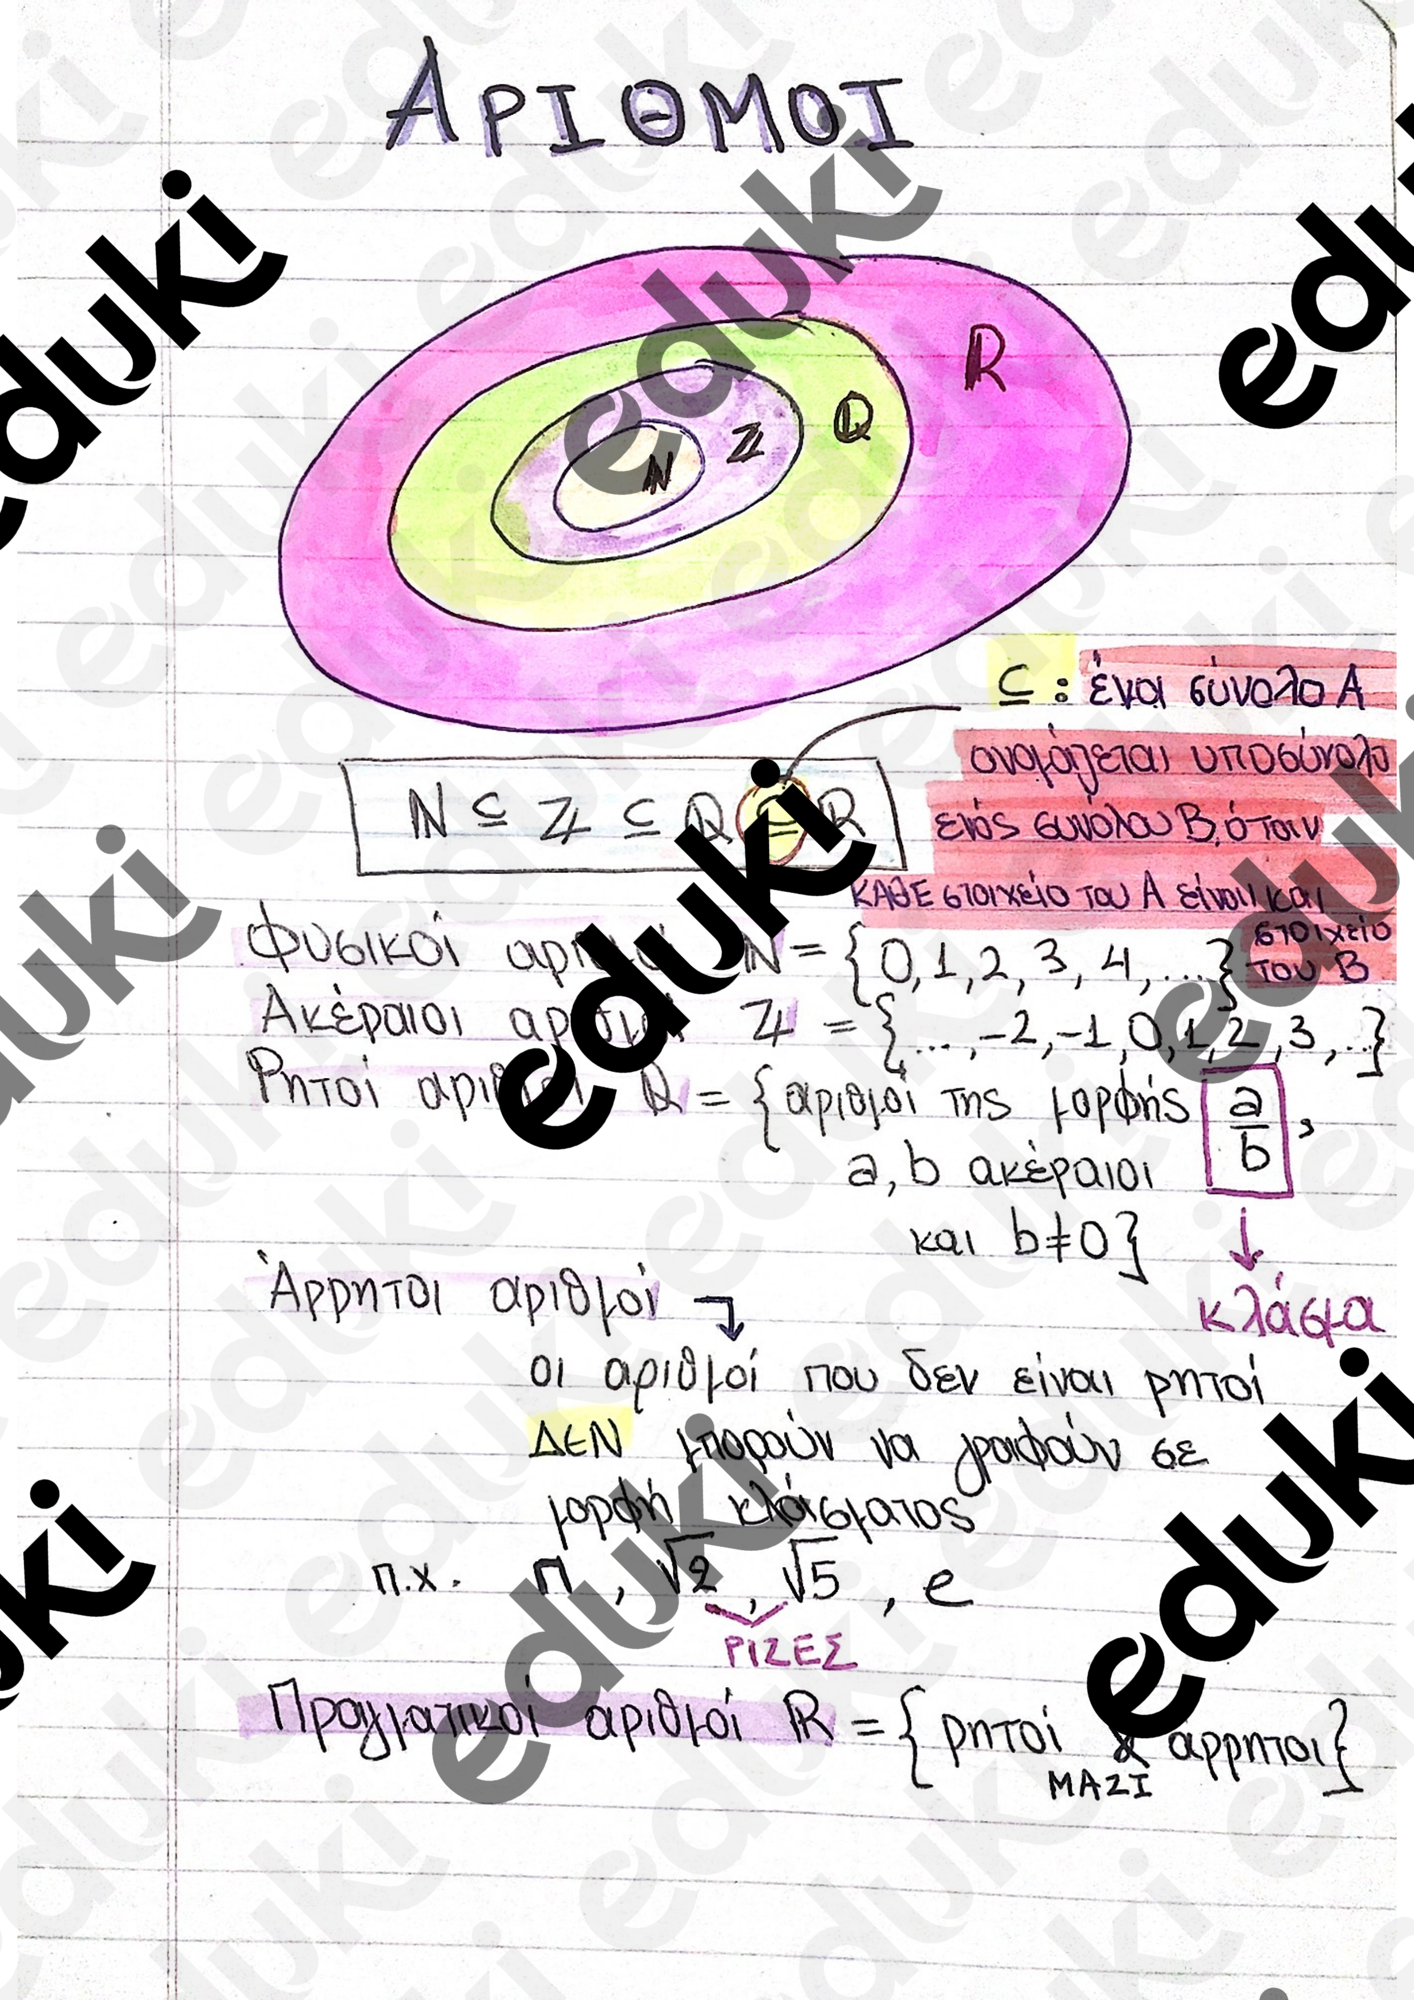 ΑΡΙΘΜΟΙ
ℝ
ℚ
ℤ
ℕ
⊆ : ένα σύνολο Α
ονομάζεται υποσύνολο
ενός συνόλου Β, όταν
ΚΑΘΕ στοιχείο του Α είναι και
στοιχείο
του Β
ℕ ⊆ ℤ ⊆ ℚ ⊆ ℝ
Φυσικοί αριθμοί ℕ = {0, 1, 2, 3, 4, ...}
Ακέραιοι αριθμοί ℤ = {..., -2, -1, 0, 1, 2, 3, ...}
Ρητοί αριθμοί ℚ = {αριθμοί της μορφής a/b ,
a, b ακέραιοι
και b≠0}
κλάσμα
Άρρητοι αριθμοί
οι αριθμοί που δεν είναι ρητοί
ΔΕΝ μπορούν να γραφούν σε
μορφή κλάσματος
π.χ. π , √2 , √5 , e
ΡΙΖΕΣ
Πραγματικοί αριθμοί ℝ = { ρητοί & αρρητοι}
ΜΑΖΙ
eduki
eduki
eduki
eduki
eduki
eduki
eduki
eduki
eduki